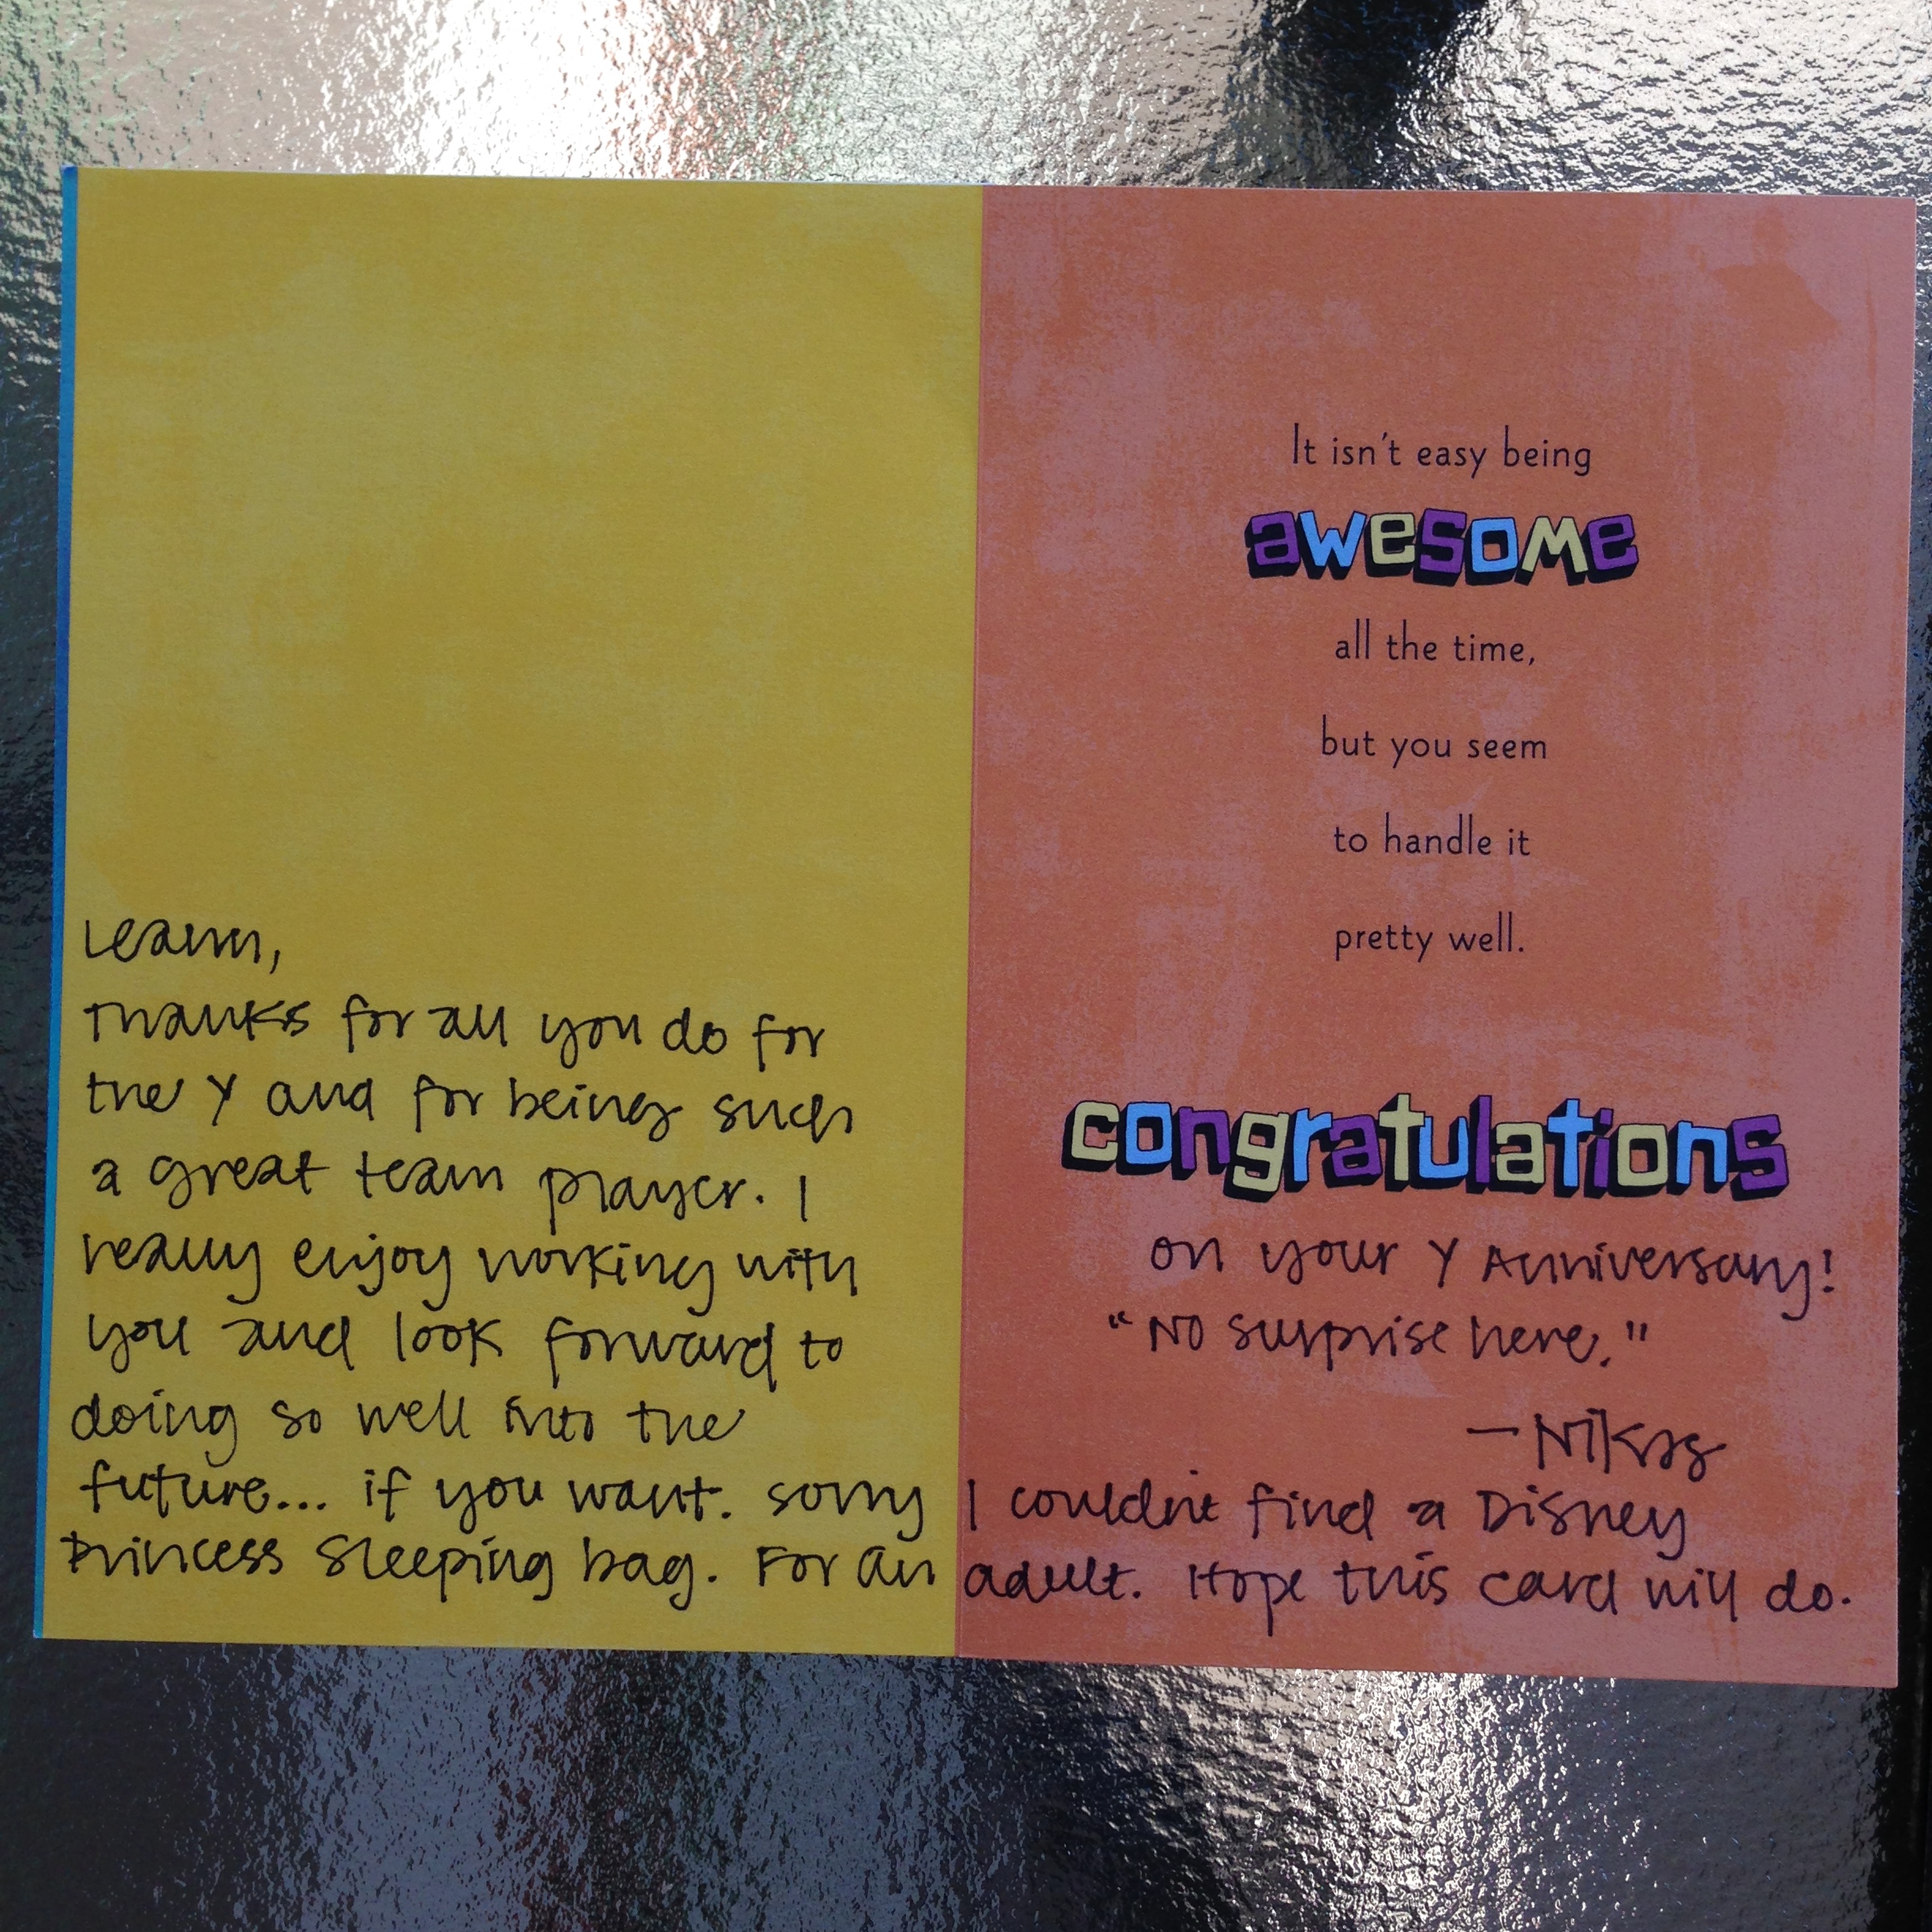 Leann,
Thanks for all you do for
the Y and for being such
a great team player. I
really enjoy working with
you and look forward to
doing so well into the
future... if you want. Sorry I couldn't find a Disney
Princess Sleeping bag. For an adult. Hope this card will do.
It isn't easy being
awesome
all the time,
but you seem
to handle it
pretty well.
congratulations
on your Y Anniversary!
"No surprise here."